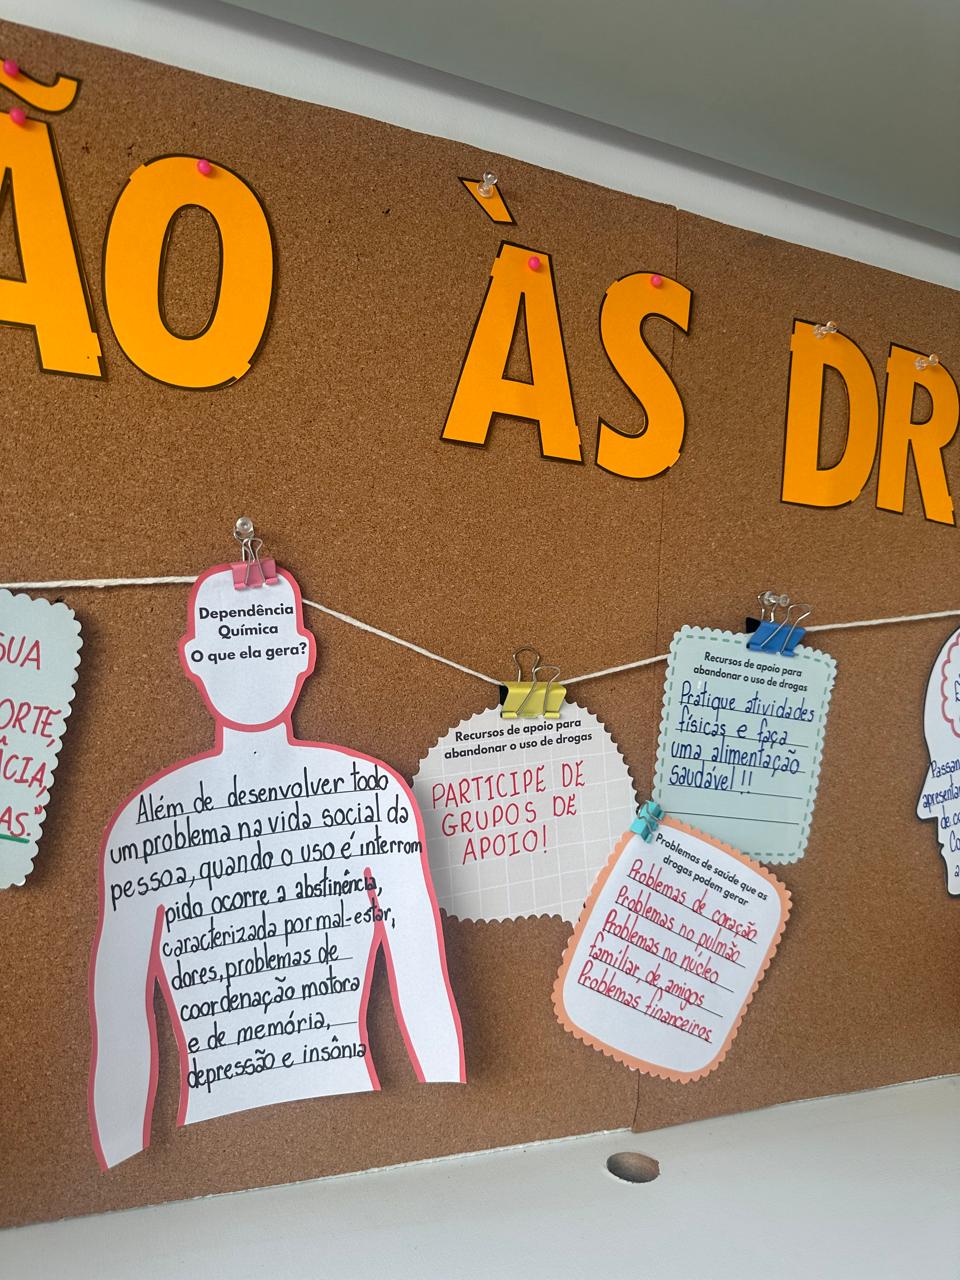 ÃO ÀS DR
SUA
ORTE,
CIA,
AS."
Dependência
Química
O que ela gera?
Além de desenvolver todo
um problema na vida social da
pessoa, quando o uso é interrom
pido ocorre a abstinência,
caracterizada por mal-estar,
dores, problemas de
coordenação motora
e de memória,
depressão e insônia
Recursos de apoio para
abandonar o uso de drogas
PARTICIPE DE
GRUPOS DE
APOIO!
Recursos de apoio para
abandonar o uso de drogas
Pratique atividades
físicas e faça
uma alimentação
saudável!!
Problemas de saúde que as
drogas podem gerar
Problemas de coração
Problemas no pulmão
Problemas no núcleo
familiar, de amigos
Problemas financeiros
Passan
apresenta
de co
Co